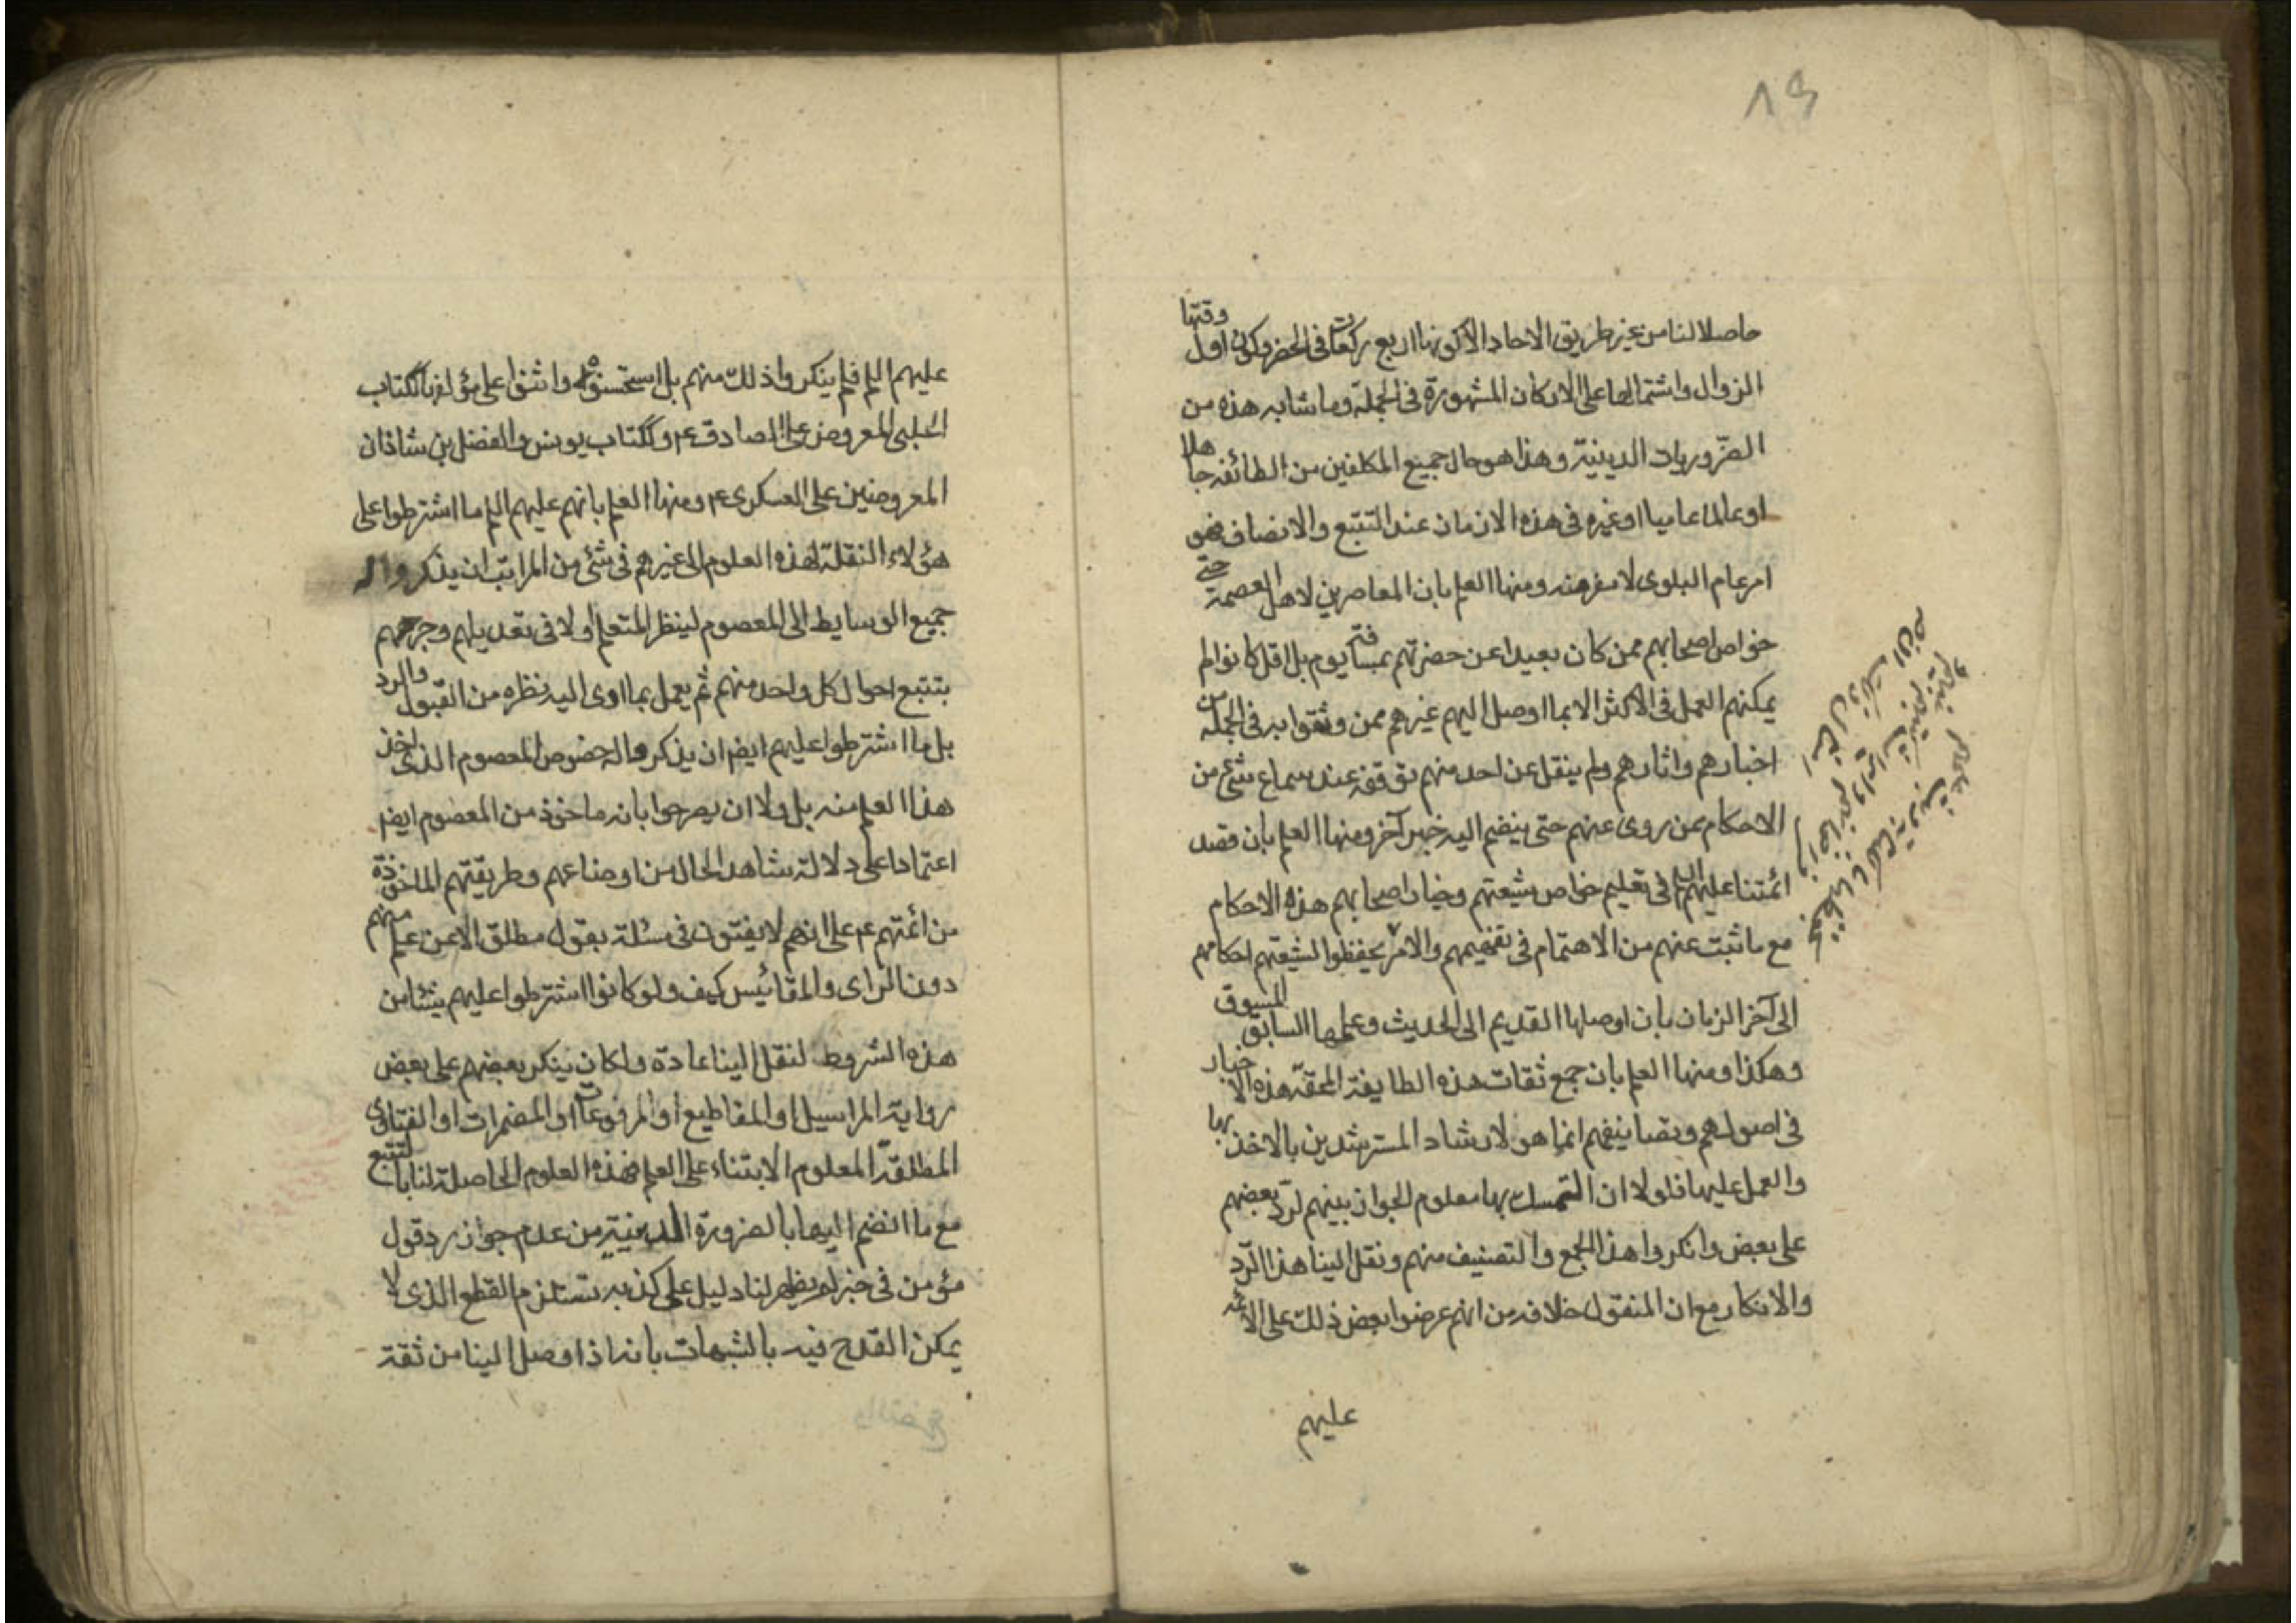 ٨٩
حاصلا لنا من غير طريق الاحاد الا كونها اربع ركعات في الحضر وكون اول وقتها
الزوال واشتمالها على الاركان المشهورة في الجملة وما شابه هذه من
الضّروريات الدينية وهذا هو حال جميع المكلفين من الطائفة جاهلا
او عالما عاميا او غيره في هذه الازمان عند التتبع والانصاف فهو
امر عام البلوى لا مفر منه ومنها العلم بان المعاصرين لاهل العصمة حتى
خواص اصحابهم ممن كان بعيدا عن حضرتهم بمسافة يوم بل اقل كانوا لم
يمكنهم العمل في الاكثر الا بما اوصل اليهم غيرهم ممن وثقوا به في الجملة من
اخبارهم واثارهم ولم ينقل عن احد منهم توقفه عند سماع شئ من
الاحكام عن روى عنهم حتى ينضم اليه خبر آخر ومنها العلم بان قصد
ائمتنا عليهم السلم في تعليم خواص شيعتهم وخيار اصحابهم هذه الاحكام
مع ما ثبت عنهم من الاهتمام في تفهيمهم والامر يحفظوا لشيعتهم احكامهم
الى آخر الزمان بان اوصلها القديم الى الحديث وعلمها السابق المسبوق
وهكذا ومنها العلم بان جمع ثقات هذه الطايفة المحقّة هذه الاخبار
في اصولهم وتصانيفهم انما هو لارشاد المسترشدين بالاخذ بها
والعمل عليها فلولا ان التمسك بها معلوم الجواز بينهم لردّ بعضهم
على بعض وانكروا هذا الجمع والتصنيف منهم ونقل الينا هذا الردّ
والانكار مع ان المنقول خلافه من انهم عرضوا بعض ذلك على الائمة
عليهم
عليهم السلم فلم ينكروا ذلك منهم بل استحسنوه واثنوا على مؤلفه ككتاب
الحلبي المعروض على الصادق ع وككتاب يونس والفضل بن شاذان
المعروضين على العسكرى ع ومنها العلم بانهم عليهم السلم ما اشترطوا على
هؤلاء النقلة لهذه العلوم الى غيرهم في شئ من المراتب ان يذكروا له
جميع الوسايط الى المعصوم لينظر المتعلم اولا في تعديلهم وجرحهم
بتتبع احوال كل واحد منهم ثم يعمل بما اوى اليه نظره من القبول والرد
بل ما اشترطوا عليهم ايضا ان يذكروا له خصوص المعصوم الذى اخذ
هذا العلم منه بل ولا ان يصرحوا بانه ماخوذ من المعصوم ايضا
اعتمادا على دلالة شاهد الحال من اوضاعهم وطريقتهم الماخوذة
من ائمتهم ع على انهم لا يفتون في مسئلة بقول مطلق الا عن علم منهم
دون الراى والمقائيس كيف ولو كانوا اشترطوا عليهم شيئا من
هذه الشروط لنقل الينا عادة ولكان ينكر بعضهم على بعض
رواية المراسيل او المقاطيع او المرفوعات او المضمرات او الفتاوى
المطلقة المعلوم الابتناء على العلم فهذه العلوم الحاصلة لنا بالتتبع
مع ما انضم اليها بالضرورة الدينية من عدم جواز رد قول
مؤمن في خبر لم يظهر لنا دليل على كذبه تستلزم القطع الذى لا
يمكن القدح فيه بالشبهات بانه اذا وصل الينا من ثقة